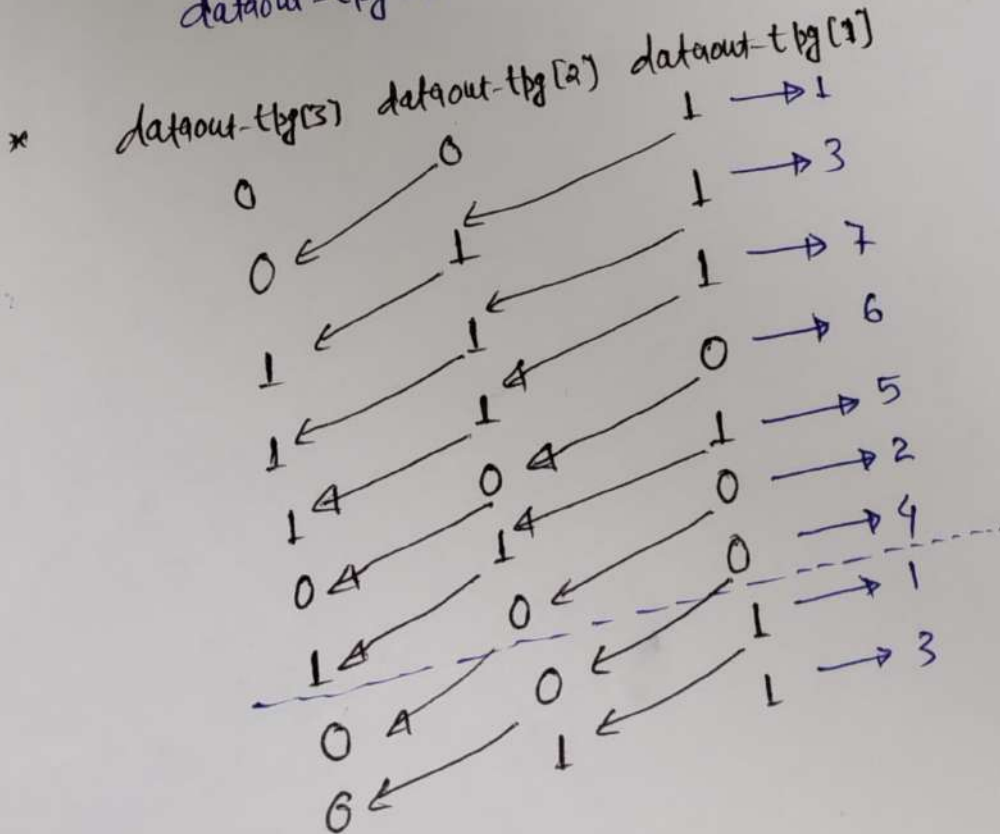 dataout-tpg
* dataout-tpg[3] dataout-tpg[2] dataout-tpg[1]
0 0 1 → 1
0 1 1 → 3
1 1 1 → 7
1 1 0 → 6
1 0 1 → 5
0 1 0 → 2
1 0 0 → 4
0 0 1 → 1
0 1 1 → 3